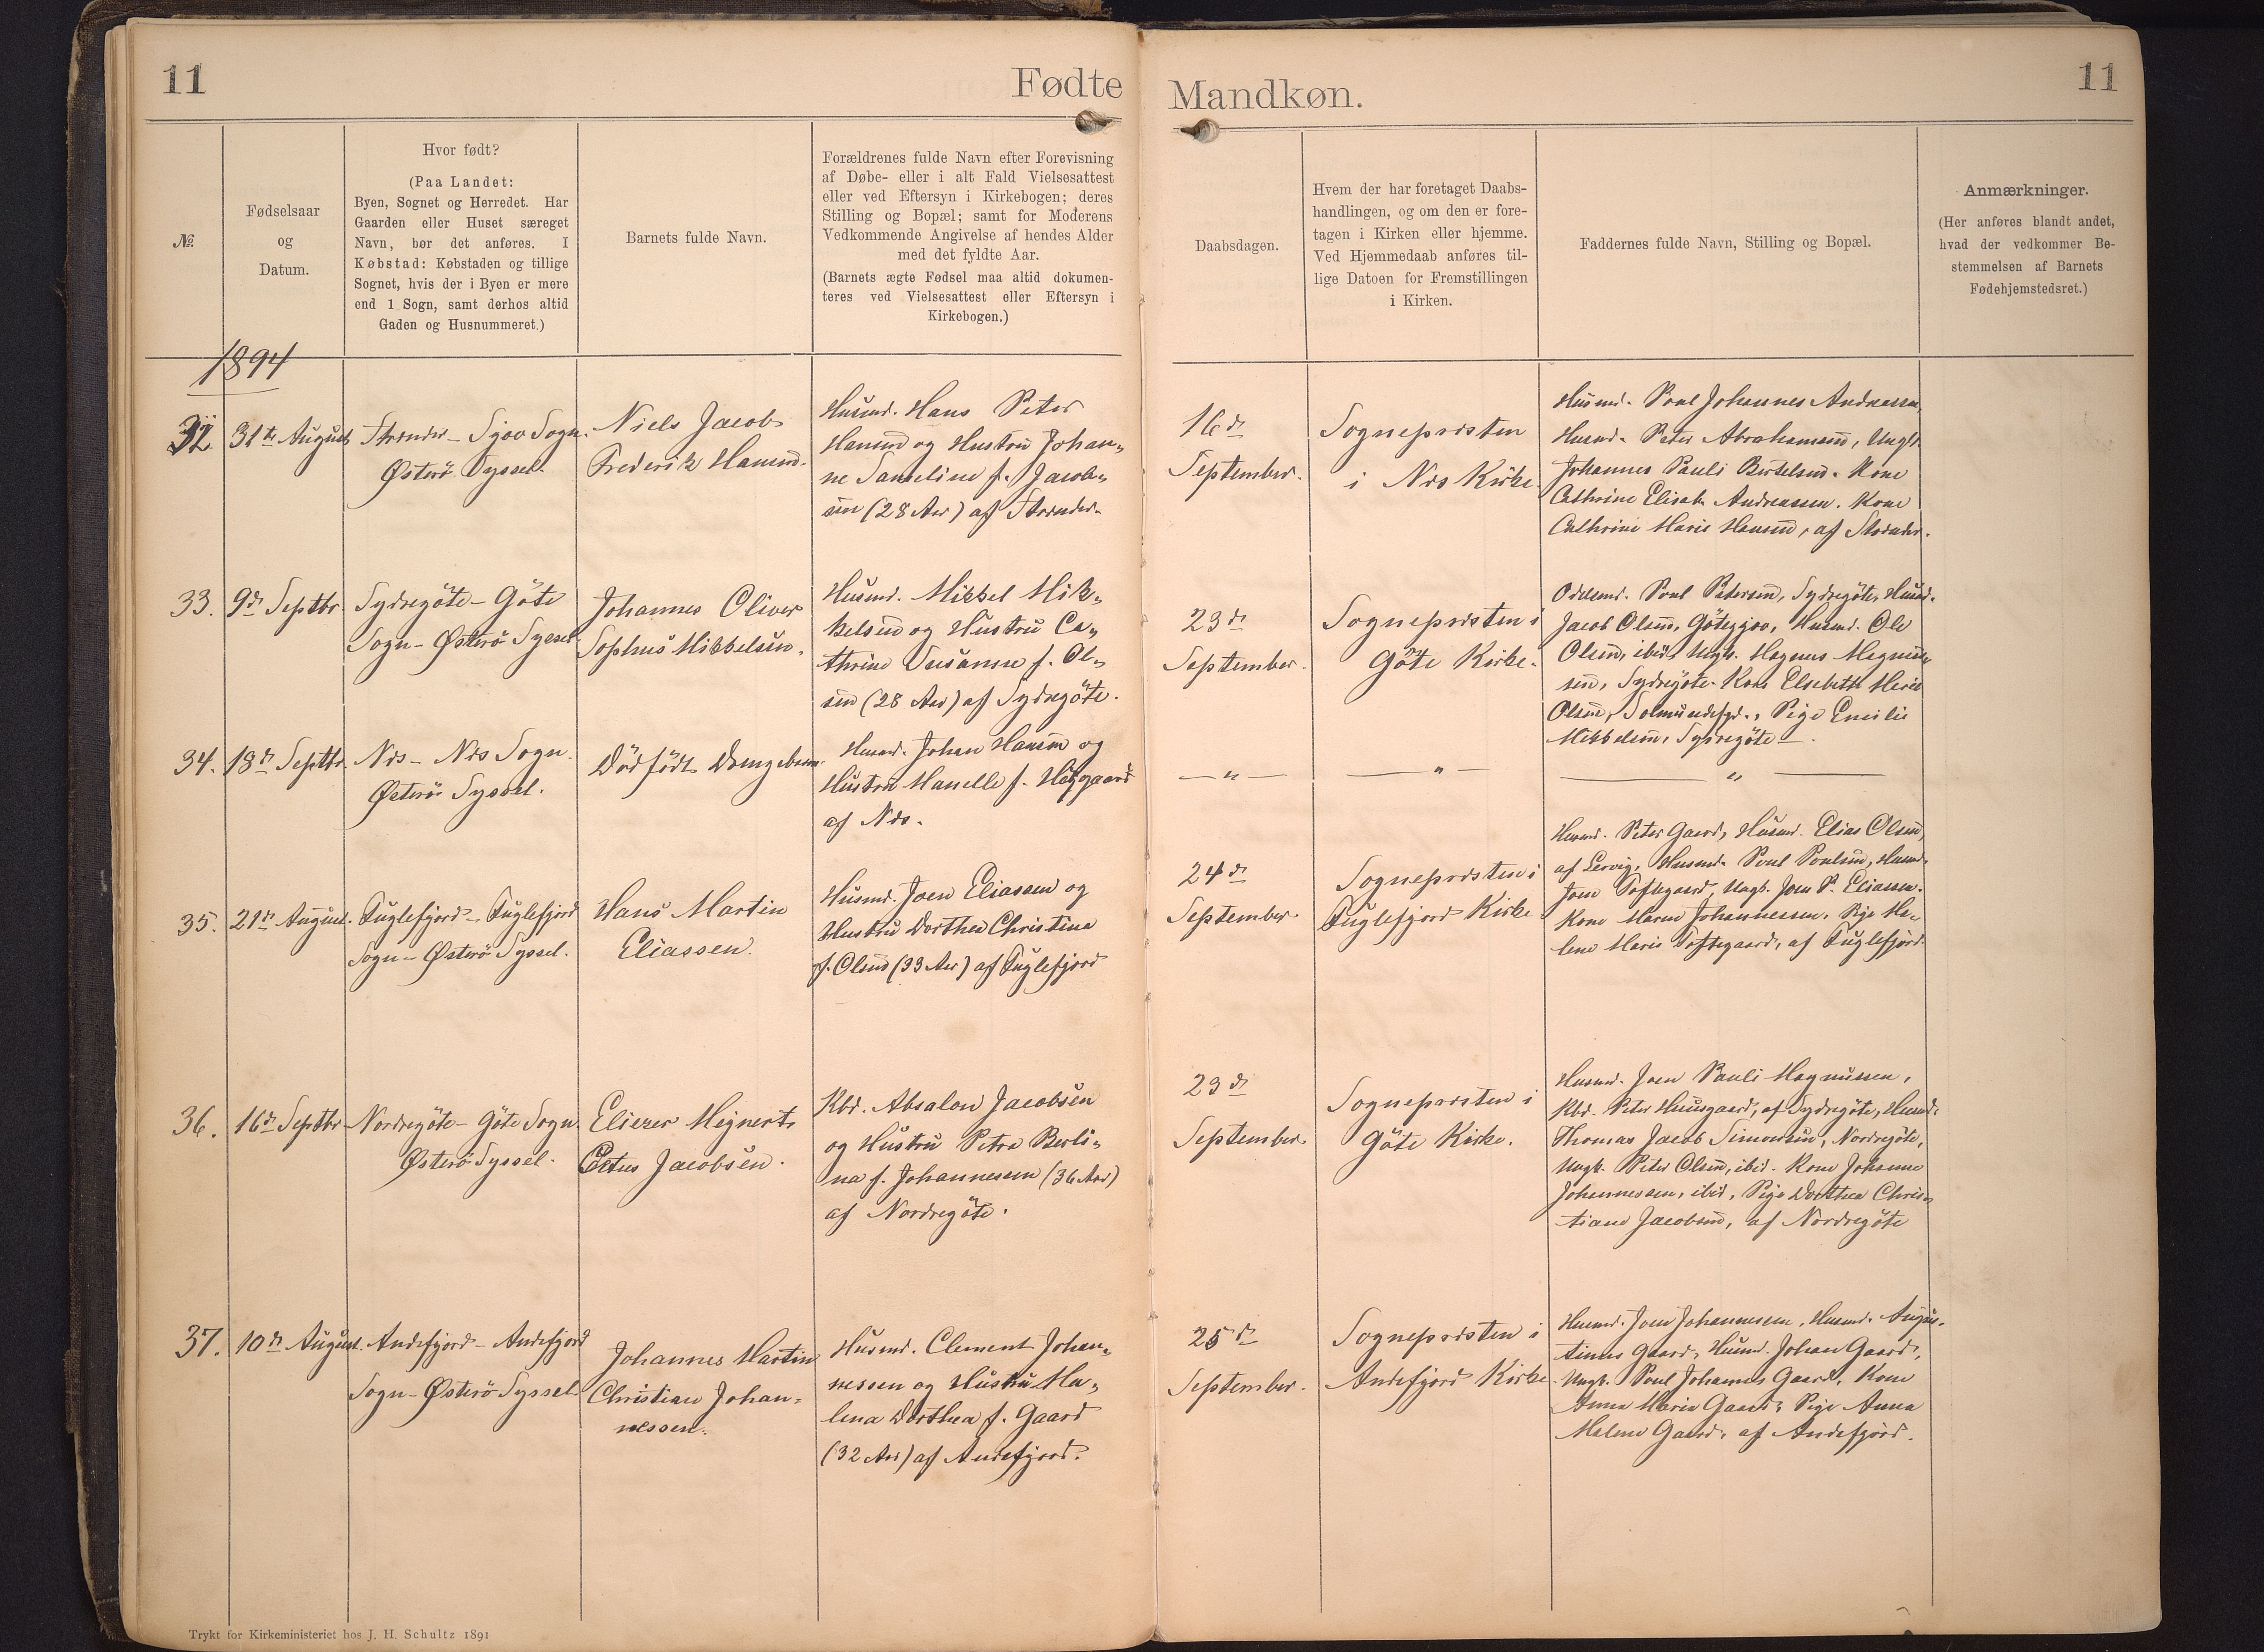 11
Fødte
Mandkøn.
11
№.
Fødselsaar
og
Datum.
Hvor født?
(Paa Landet:
Byen, Sognet og Herredet. Har
Gaarden eller Huset særeget
Navn, bør det anføres. I
Købstad: Købstaden og tillige
Sognet, hvis der i Byen er mere
end 1 Sogn, samt derhos altid
Gaden og Husnummeret.)
Barnets fulde Navn.
Forældrenes fulde Navn efter Forevisning
af Døbe- eller i alt Fald Vielsesattest
eller ved Eftersyn i Kirkebogen; deres
Stilling og Bopæl; samt for Moderens
Vedkommende Angivelse af hendes Alder
med det fyldte Aar.
(Barnets ægte Fødsel maa altid dokumen-
teres ved Vielsesattest eller Eftersyn i
Kirkebogen.)
Daabsdagen.
Hvem der har foretaget Daabs-
handlingen, og om den er fore-
tagen i Kirken eller hjemme.
Ved Hjemmedaab anføres til-
lige Datoen for Fremstillingen
i Kirken.
Faddernes fulde Navn, Stilling og Bopæl.
Anmærkninger.
(Her anføres blandt andet,
hvad der vedkommer Be-
stemmelsen af Barnets
Fødehjemstedsret.)
1894
32.
31te August
Strænder - Sjov Sogn.
Østerö Syssel.
Niels Jacob
Frederik Hansen.
Husmd. Hans Peter
Hansen og Hustru Johan-
ne Sameline f. Jacob-
sen (28 Aar) af Strænder.
16de
September.
Sognepræsten
i Næs Kirke.
Husmd. Poul Johannes Andreassen,
Husmd. Peter Abrahamsen, Ungk.
Johannes Pauli Bertelsen. Kone
Cathrine Elisab. Andreassen. Kone
Cathrine Marie Hansen, af Strænder.
33.
9de Septbr.
Sydregöte - Göte
Sogn - Østerö Syssel.
Johannes Oliver
Sophus Mikkelsen.
Husmd. Mikkel Mik-
kelsen og Hustru Ca-
thrine Susanne f. Ol-
sen (28 Aar) af Sydregöte.
23de
September.
Sognepræsten i
Göte Kirke.
Odelsmd. Poul Petersen, Sydregöte, Husmd.
Jacob Olsen, Götegjov, Husmd. Ole
Olsen, ibid, Ungk. Magnus Magnus-
sen, Sydregöte. Kone Elsebeth Marie
Olsen, Solmundefjd., Pige Emilie
Mikkelsen, Sydregöte.
34.
18de Septbr.
Næs - Næs Sogn.
Østerö Syssel.
Dödfödt Drengebarn.
Husmd. Johan Hansen og
Hustru Hanelle f. Höjgaard
af Næs.
— " —
— " —
— " —
35.
21de August.
Fuglefjord - Fuglefjord
Sogn - Østerö Syssel.
Hans Martin
Eliassen.
Husmd. Joen Eliassen og
Hustru Dorthea Christina
f. Olsen (33 Aar) af Fuglefjord
24de
September.
Sognepræsten i
Fuglefjord Kirke
Husmd. Peter Gaard, Husmd. Elias Olsen,
af Lervig, Husmd. Poul Poulsen, Husmd.
Joen Toftegaard, Ungk. Joen P. Eliassen.
Kone Maren Johannessen, Pige Ma-
lene Marie Toftegaard, af Fuglefjord.
36.
16de Septbr.
Nordregöte - Göte Sogn.
Østerö Syssel.
Eliezer Mejnert
Petus Jacobsen.
Kbd. Absalon Jacobsen
og Hustru Petra Berli-
na f. Johannessen (36 Aar)
af Nordregöte.
23de
September.
Sognepræsten i
Göte Kirke.
Husmd. Joen Pauli Magnussen,
Kbd. Peter Huusgaard, af Sydregöte, Husmd.
Thomas Jacob Simonsen, Nordregöte,
Ungk. Peter Olsen, ibid. Kone Johanne
Johannessen, ibid, Pige Dorthea Chris-
tiane Jacobsen, af Nordregöte
37.
10de August.
Andefjord - Andefjord
Sogn - Østerö Syssel.
Johannes Martin
Christian Johan-
nessen.
Husmd. Clement Johan-
nessen og Hustru Ma-
lena Dorthea f. Gaard
(32 Aar) af Andefjord.
25de
September.
Sognepræsten i
Andefjord Kirke.
Husmd. Joen Johannessen, Husmd. Augus-
tinus Gaard, Husmd. Johan Gaard,
Ungk. Poul Johannes Gaard, Kone
Anna Maria Gaard, Pige Anna
Malene Gaard, af Andefjord.
Trykt for Kirkeministeriet hos J. H. Schultz 1891